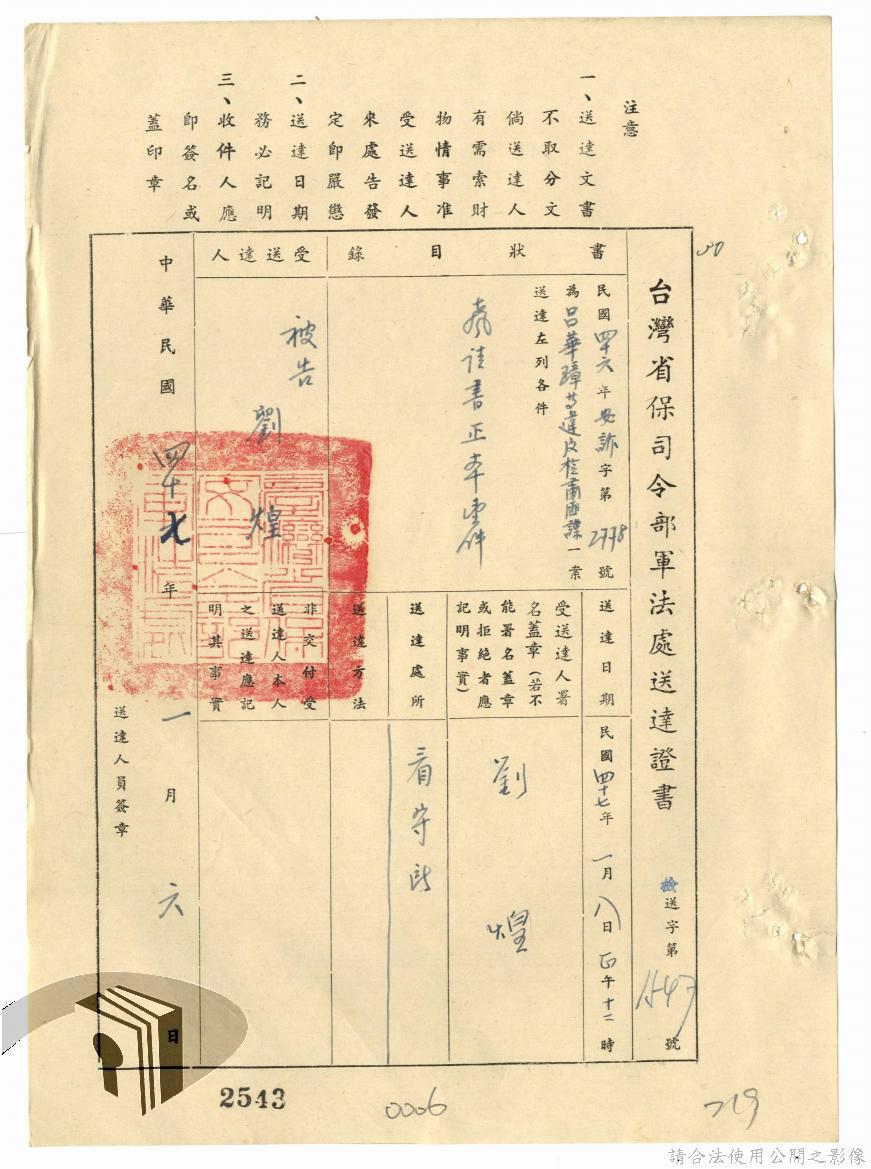 注意
一、送達文書
不取分文
倘送達人
有需索財
物情事准
受送達人
來處告發
定即嚴懲
二、送達日期
務必記明
三、收件人應
即簽名或
蓋印章
台灣省保司令部軍法處送達證書
檢送字第1547號
書狀目錄
民國四十六年安訴字第2778號
為呂華璋等違反檢肅匪諜一案
送達左列各件
書正本壹件
送達日期
民國四十七年一月八日正午十二時
受送達人署
名蓋章(若不
能署名蓋章
或拒絕者應
記明事實)
劉煌
送達處所
看守所
送達方法
受送達人
被告
劉煌
非交付受
送達人本人
之送達應記
明其事實
中華民國四十七年一月六日
送達人員簽章
2543
0006
719
請合法使用公開之影像